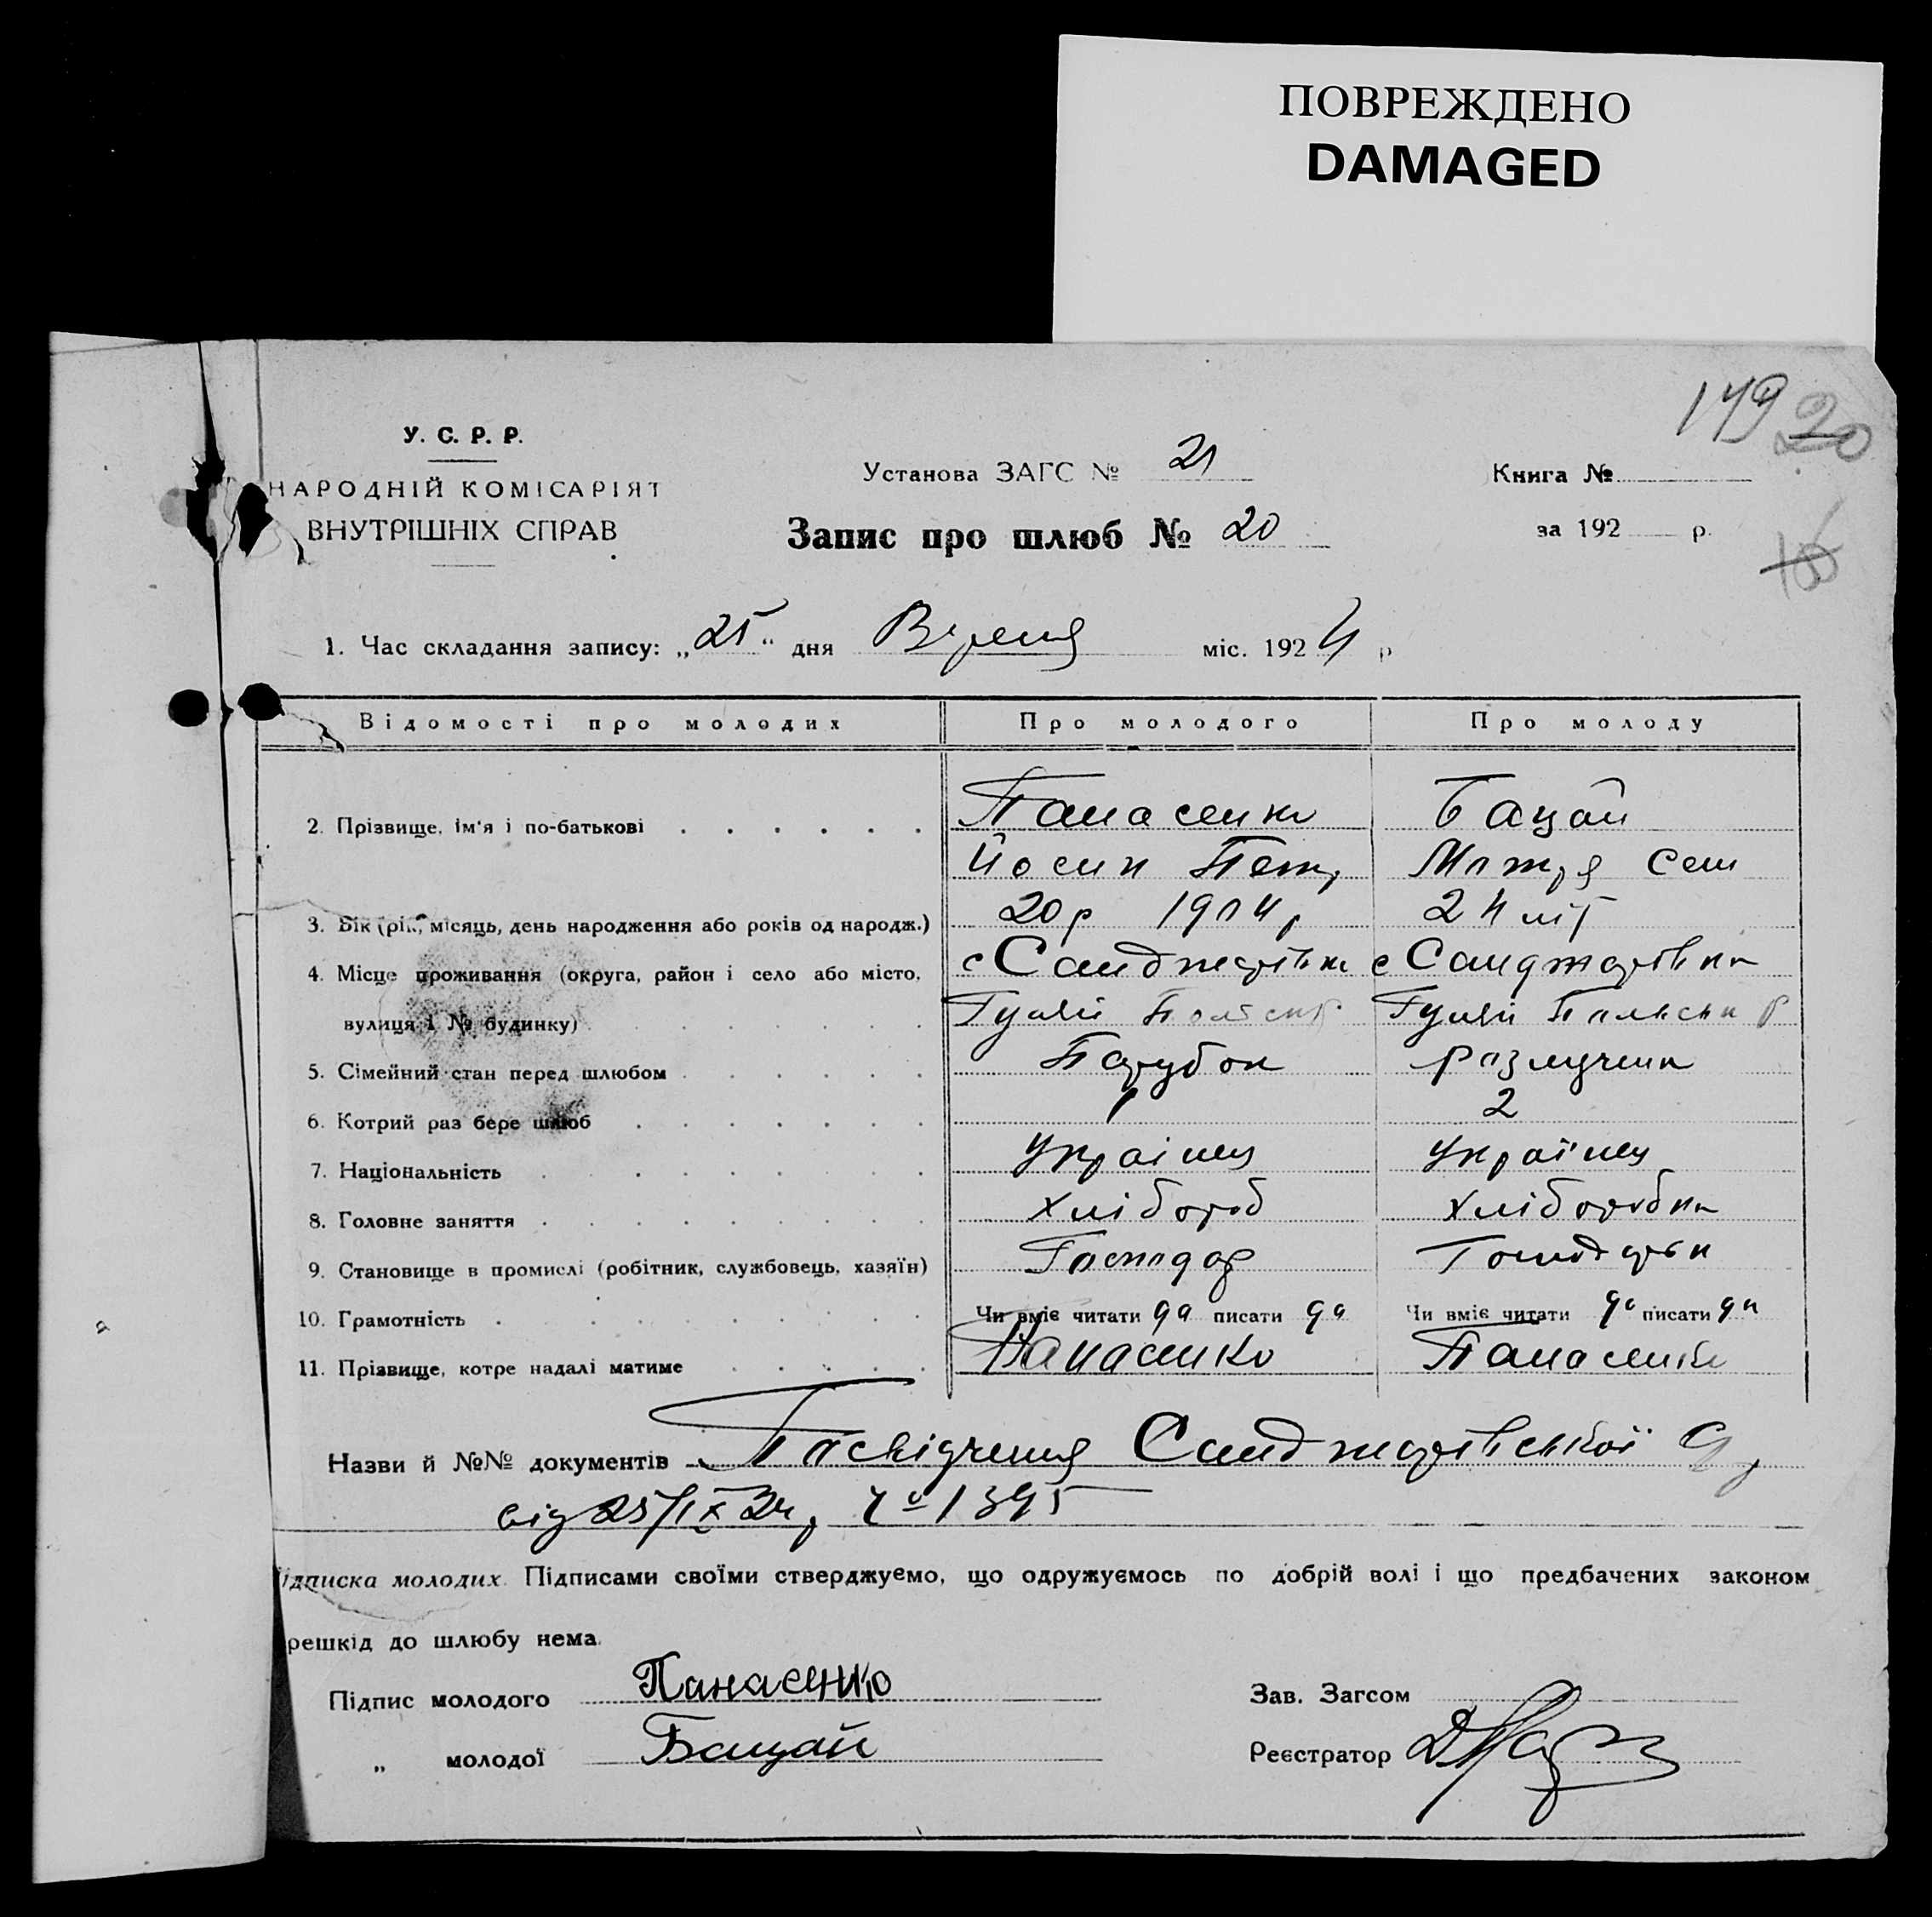 ПОВРЕЖДЕНО
DAMAGED
149 20
У. С. Р. Р.
НАРОДНІЙ КОМІСАРІЯТ
ВНУТРІШНІХ СПРАВ
Установа ЗАГС № 21
Книга №
Запис про шлюб № 20
за 192 р.
1. Час складання запису: „25“ дня Вересня міс. 1924 р
Відомості про молодих Про молодого Про молоду
2. Прізвище, ім'я і по-батькові Панасенко Бацай
Йосип Петр Мотря Сем
3. Вік (рік, місяць, день народження або років од народж.) 20 р 1904 р 24 літ
4. Місце проживання (округа, район і село або місто, с Санджарівка с Санджарівка
вулиця і № будинку) Гуляй Польськ Р Гуляй Польськ Р
5. Сімейний стан перед шлюбом Парубок розлучена
6. Котрий раз бере шлюб 1 2
7. Національність Українец Українец
8. Головне заняття Хлібороб Хліборобка
9. Становище в промислі (робітник, службовець, хазяїн) Господар Господарка
10. Грамотність Чи вміє читати да писати да Чи вміє читати да писати да
11. Прізвище, котре надалі матиме Панасенко Панасенко
Назви й №№ документів Посвідчення Санджарівської
від 25/IX 24р 1395
ідписка молодих. Підписами своїми стверджуємо, що одружуємось по добрій волі і що предбачених законом
решкід до шлюбу нема.
Підпис молодого Панасенко Зав. Загсом
„ молодої Бацай Реєстратор